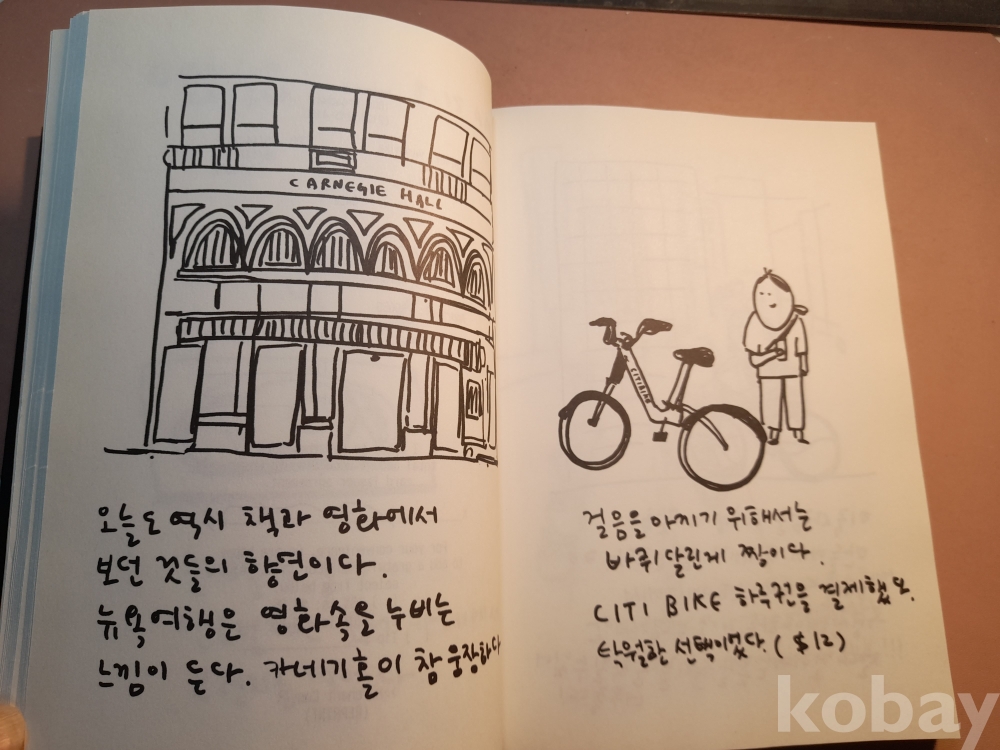 CARNEGIE HALL
오늘도 역시 책과 영화에서
보던 것들의 향연이다.
뉴욕여행은 영화속을 누비는
느낌이 든다. 카네기홀이 참 웅장하다
CITIBIKE
걸음을 아끼기 위해서는
바퀴달린게 짱이다.
CITI BIKE 하루권을 결제했고,
탁월한 선택이었다. ($12)
kobay